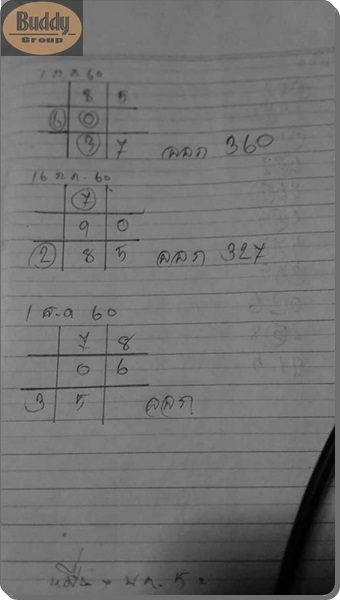 Buddy
Group
1 ก.ค 60
8 5
6 0
3 7 ออก 360
16 ก.ค. 60
7
9 0
2 8 5 ออก 327
1 ส.ค 60
7 8
0 6
3 5 ออก